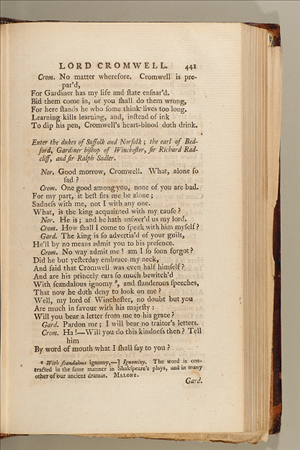 LORD CROMWELL. 441
Crom. No matter wherefore. Cromwell is pre-
par'd,
For Gardiner has my life and ſtate enſnar'd.
Bid them come in, or you ſhall do them wrong,
For here ſtands he who ſome think lives too long.
Learning kills learning, and, inſtead of ink
To dip his pen, Cromwell's heart-blood doth drink.
Enter the dukes of Suffolk and Norfolk; the earl of Bed-
ford, Gardiner biſhop of Wincheſter, ſir Richard Rad-
cliff, and ſir Ralph Sadler.
Nor. Good morrow, Cromwell. What, alone ſo
ſad?
Crom. One good among you, none of you are bad.
For my part, it beſt fits me be alone;
Sadneſs with me, not I with any one.
What, is the king acquainted with my cauſe?
Nor. He is; and he hath anſwer'd us my lord.
Crom. How ſhall I come to ſpeak with him myſelf?
Gard. The king is ſo advertis'd of your guilt,
He'll by no means admit you to his preſence.
Crom. No way admit me! am I ſo ſoon forgot?
Did he but yeſterday embrace my neck,
And ſaid that Cromwell was even half himſelf?
And are his princely ears ſo much bewitch'd
With ſcandalous ignomy, and ſlanderous ſpeeches,
That now he doth deny to look on me?
Well, my lord of Wincheſter, no doubt but you
Are much in favour with his majeſty:
Will you bear a letter from me to his grace?
Gard. Pardon me; I will bear no traitor's letters.
Crom. Ha!—Will you do this kindneſs then? Tell
him
By word of mouth what I ſhall ſay to you?
With ſcandalous ignomy,—] Ignominy. The word is con-
tracted in the ſame manner in Shakſpeare's plays, and in many
other of our ancient dramas. MALONE.
Gard.